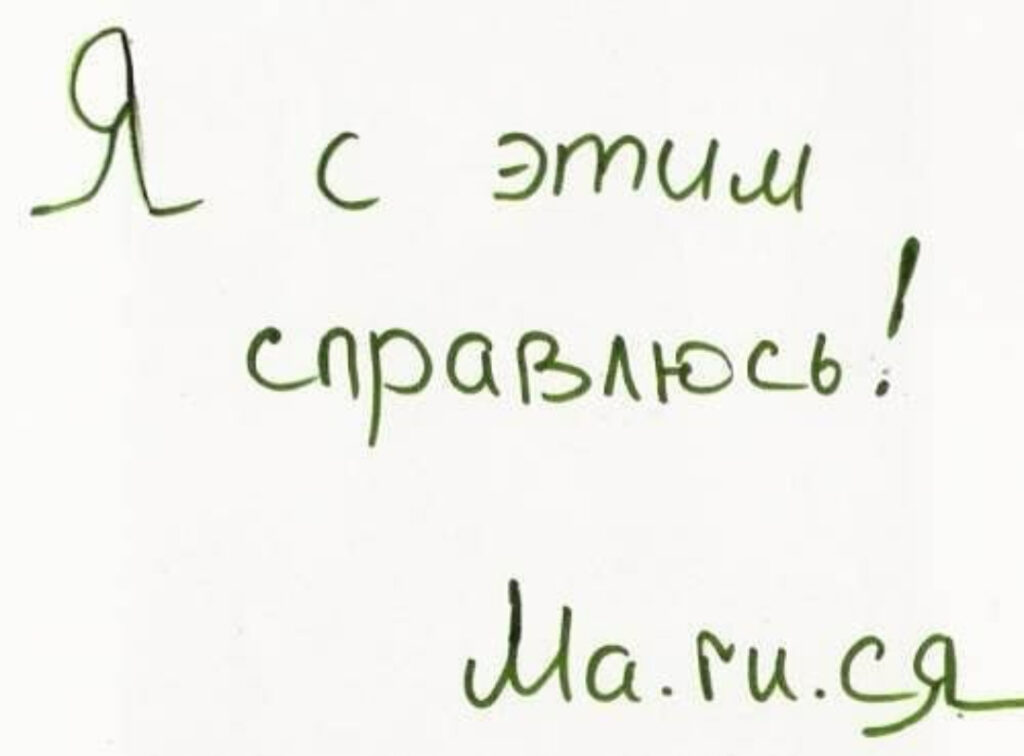 Я с этим
справлюсь!
Ма.ги.ся